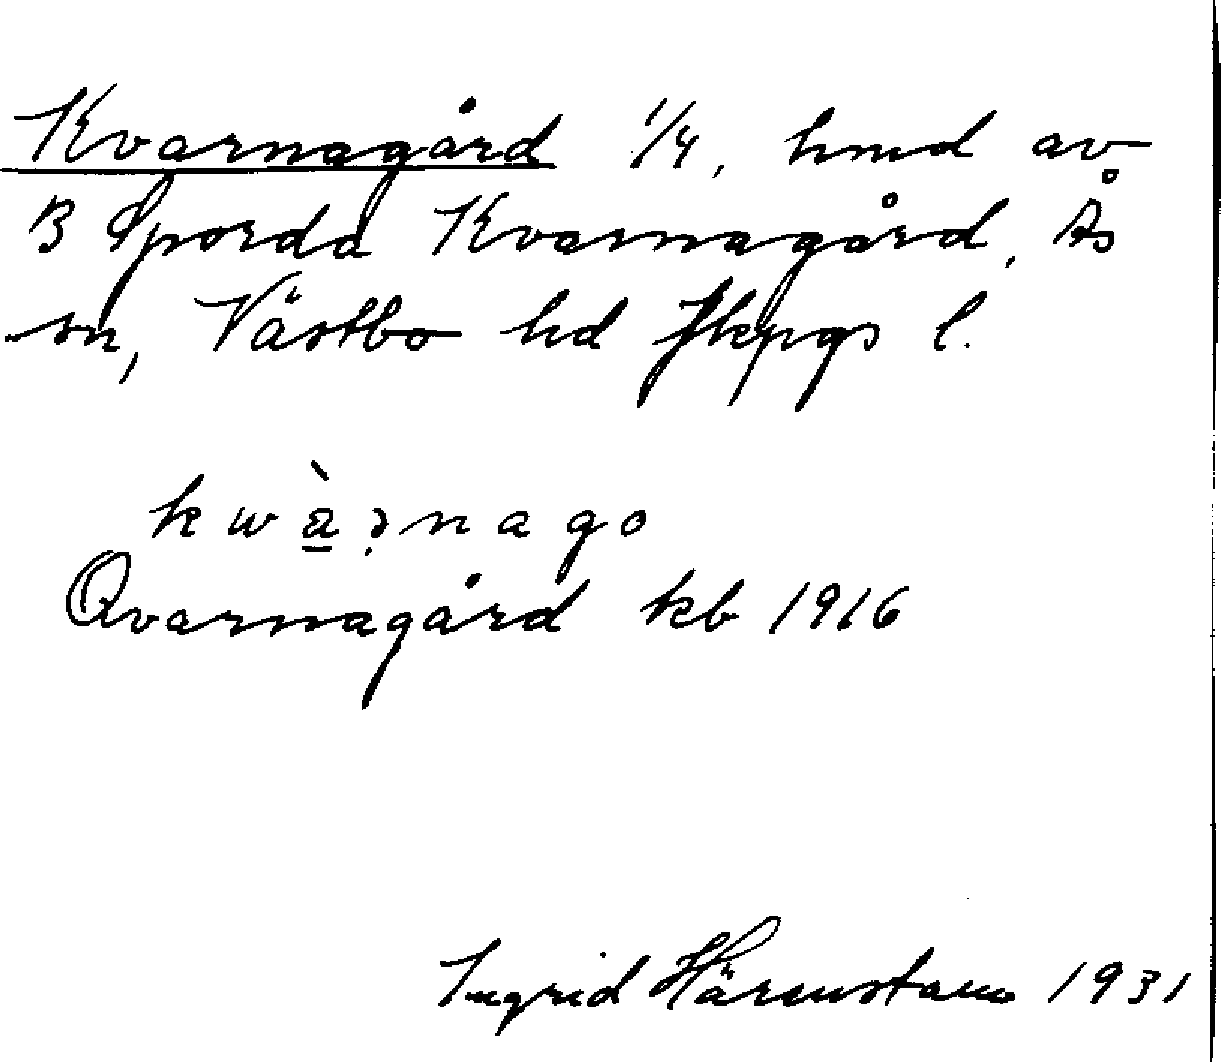 Kvarnagård 1/4, hmd av
B Sporda Kvarnagård, Ås
sn, Västbo hd Jkpgs l.
kwàrnago
Qvarnagård kb 1916
Ingrid Härenstam 1931